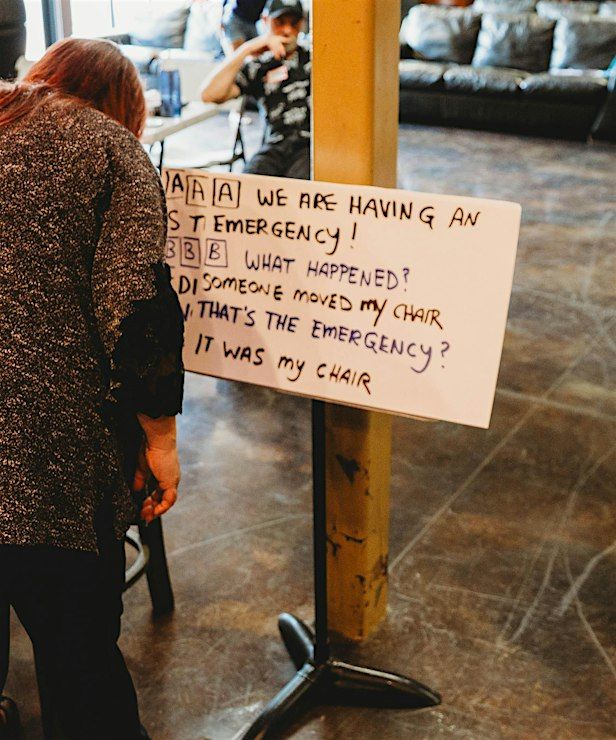 A A A WE ARE HAVING AN
EMERGENCY!
B B B WHAT HAPPENED?
SOMEONE MOVED MY CHAIR
THAT'S THE EMERGENCY?
IT WAS MY CHAIR